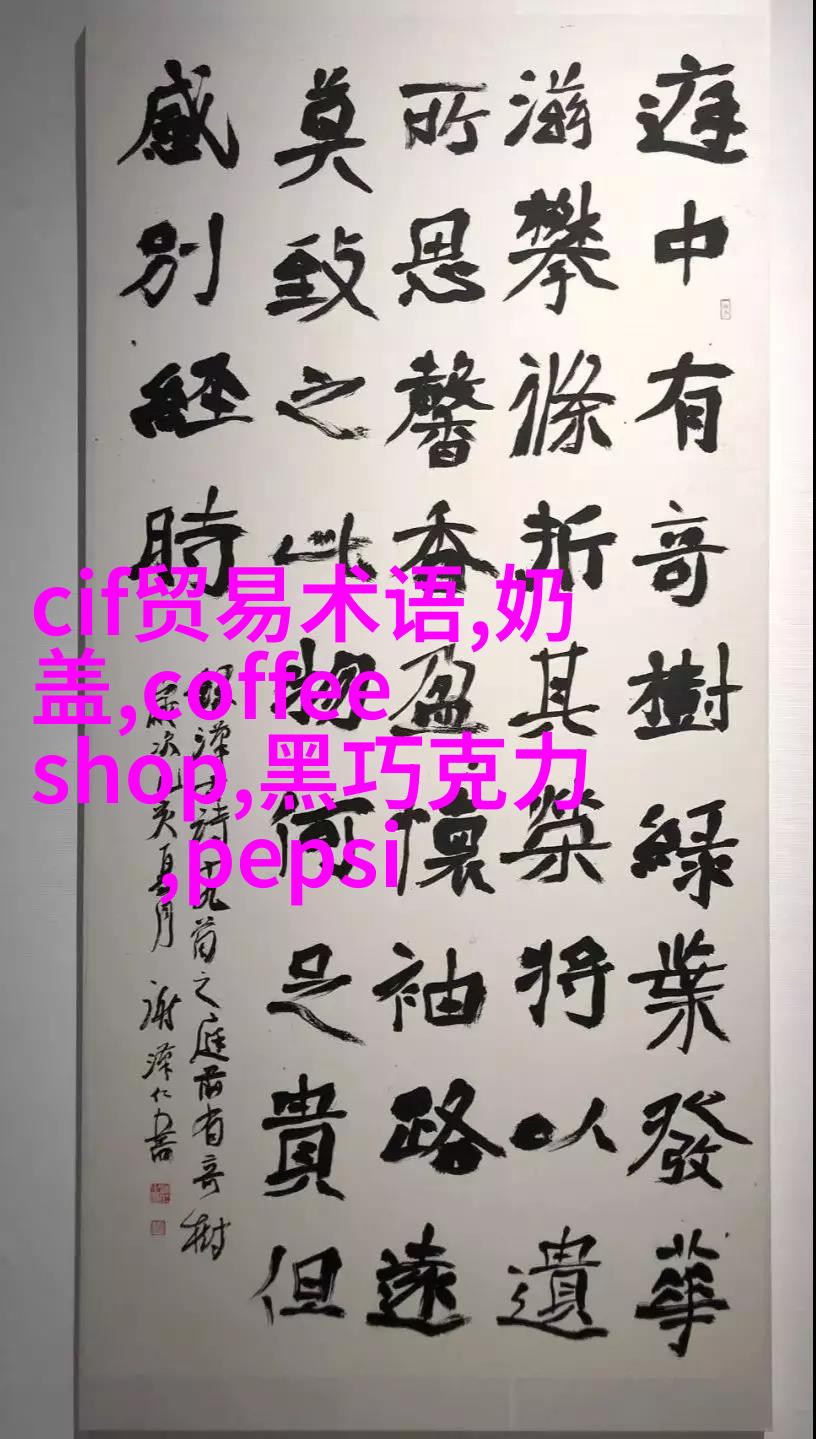 庭中有奇樹綠葉發華
滋攀條折其榮將以遺
所思馨香盈懷袖路遠
莫致之此物何足貴但
感別經時
漢古詩十九首之庭前有奇樹
歲次亥夏月 謝澤仁書
cif贸易术语,奶
盖,coffee
shop,黑巧克力
,pepsi